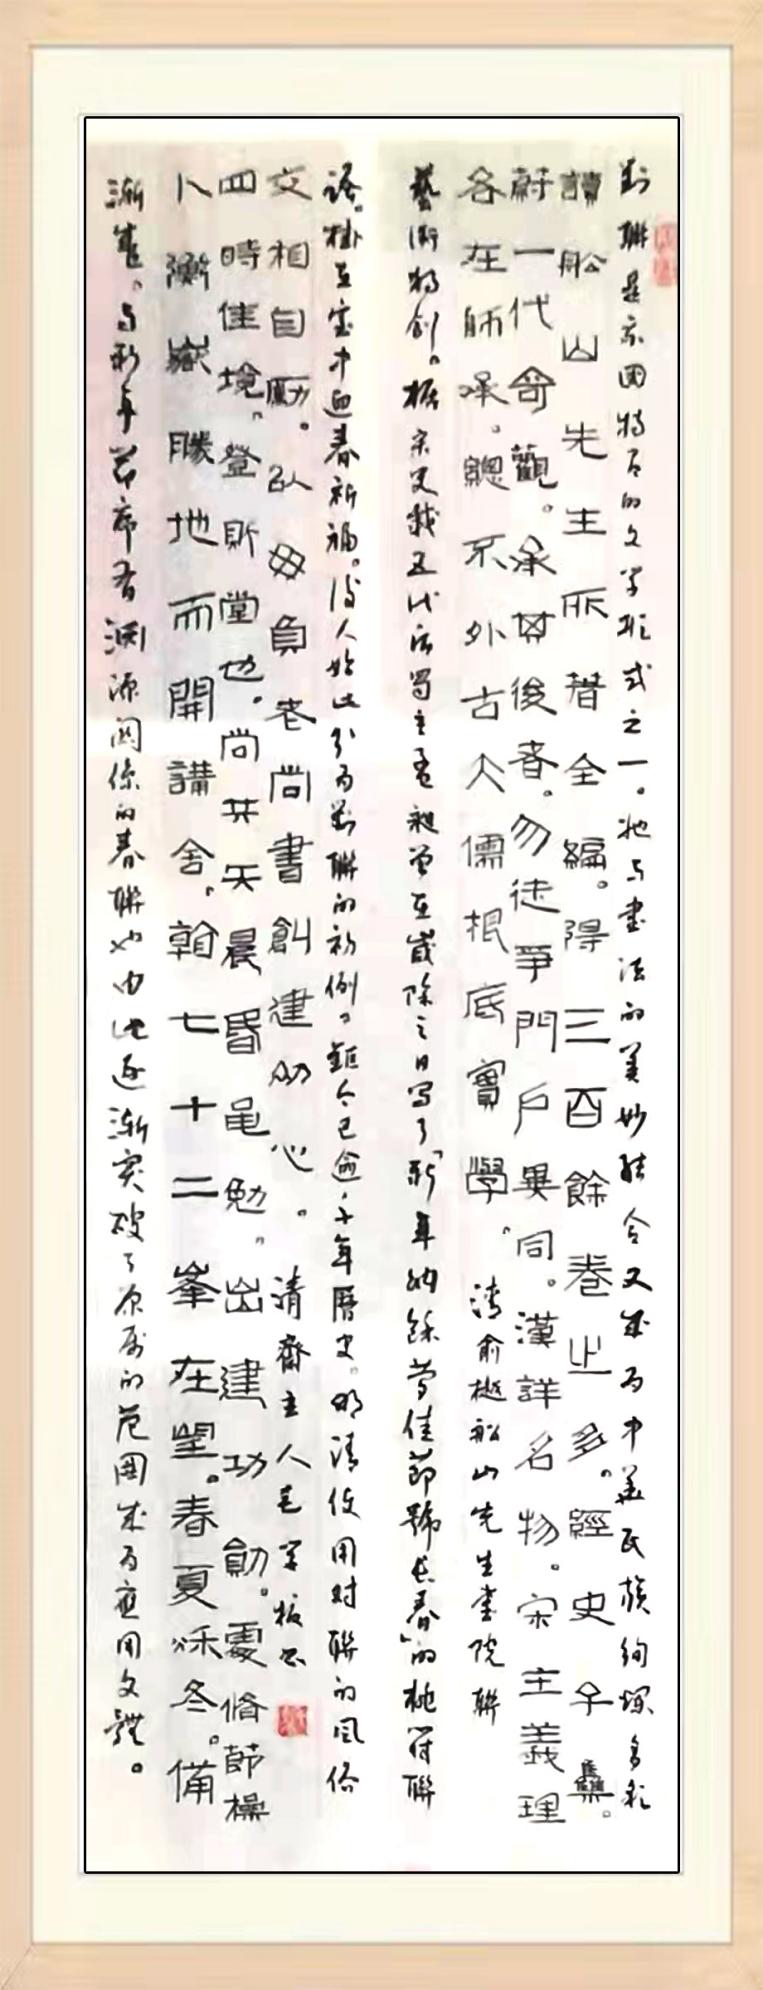 對聯是我国特有的文学形式之一。它与書法的美妙結合又成为中華民族绚烂多彩
讀船山先生所著全編。得三百餘卷止多。經史子集。
蔚一代奇觀。承其後者。勿徒爭門戶異同。漢詳名物。宋主義理
各在師承。總不外古大儒根底實學。清俞樾船山先生書院聯
藝術独創。据宋史載五代后蜀主孟昶曾在歲除之日写了「新年納餘慶佳節號長春」的桃符聯
語。掛在室中迎春祈福。後人始此引为對聯的初例。距今已逾千年曆史。明清使用对聯的風俗
卜衡嶽勝地而開講舍。翰七十二峯在望。春夏秋冬。備
四時佳境。登斯堂也。尚其天晨昏黽勉。出建功勛。處脩節操
交相自勵。以毋負老尚書創建初心。清齋主人毛字板書
渐盛。与新年節席有渊源關係的春聯也由此逐渐突破了原属的范围成为應用文體。